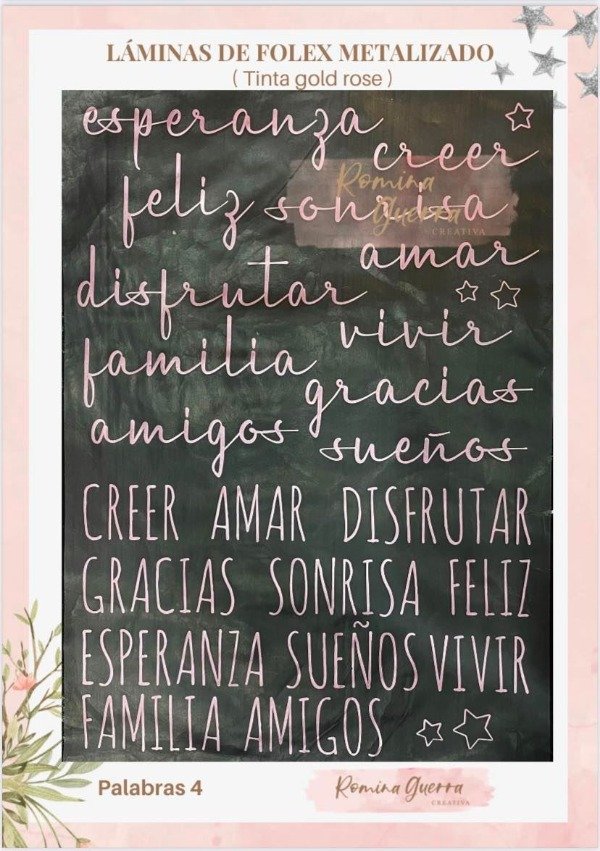 LÁMINAS DE FOLEX METALIZADO
( Tinta gold rose )
esperanza
creer
Romina
Guerra
CREATIVA
feliz sonrisa
amar
disfrutar
vivir
familia
gracias
amigos
sueños
CREER AMAR DISFRUTAR
GRACIAS SONRISA FELIZ
ESPERANZA SUEÑOS VIVIR
FAMILIA AMIGOS
Palabras 4
Romina Guerra
CREATIVA